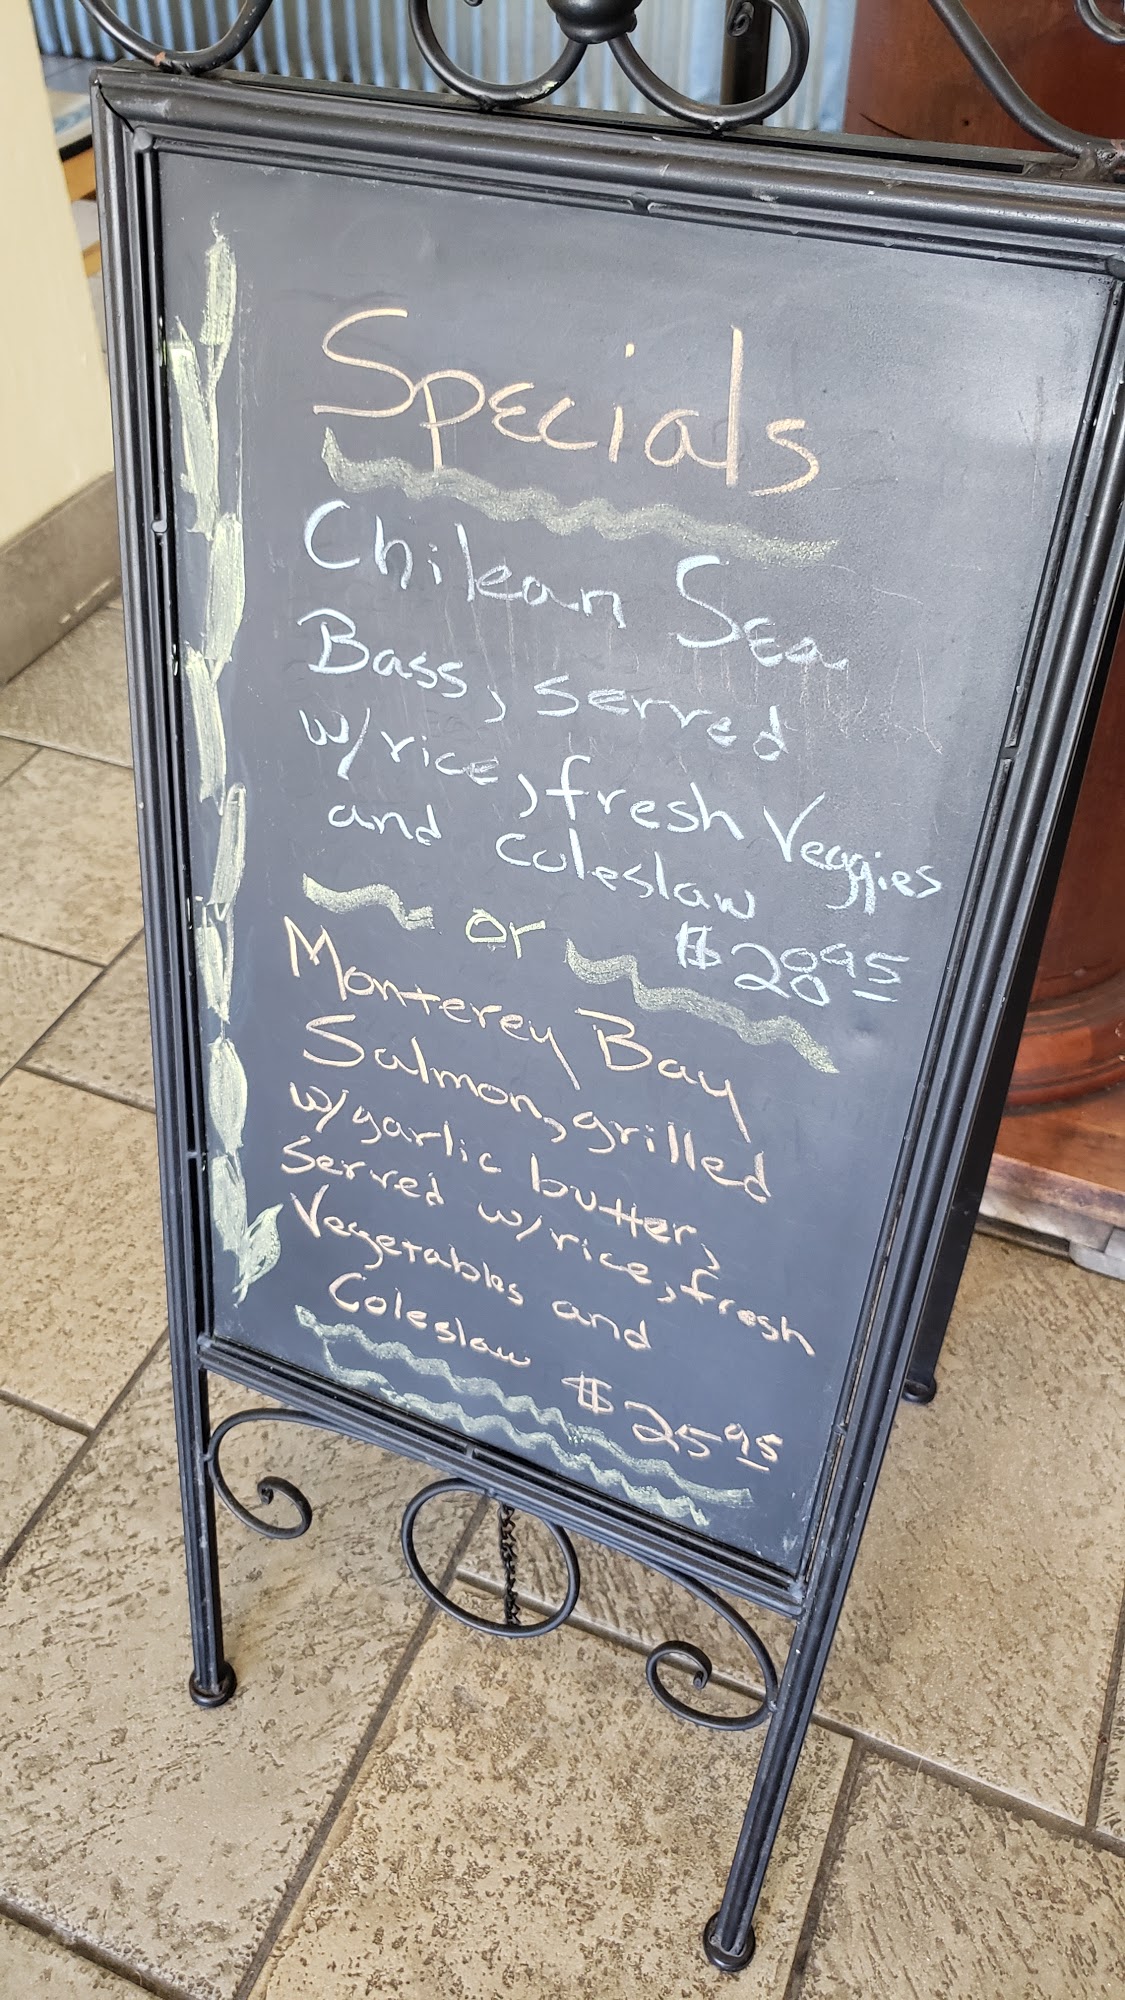 Specials
Chilean Sea
Bass, served
w/rice, fresh Veggies
and Coleslaw
or $28.95
Monterey Bay
Salmon, grilled
w/garlic butter,
Served w/rice, fresh
Vegetables and
Coleslaw
$25.95